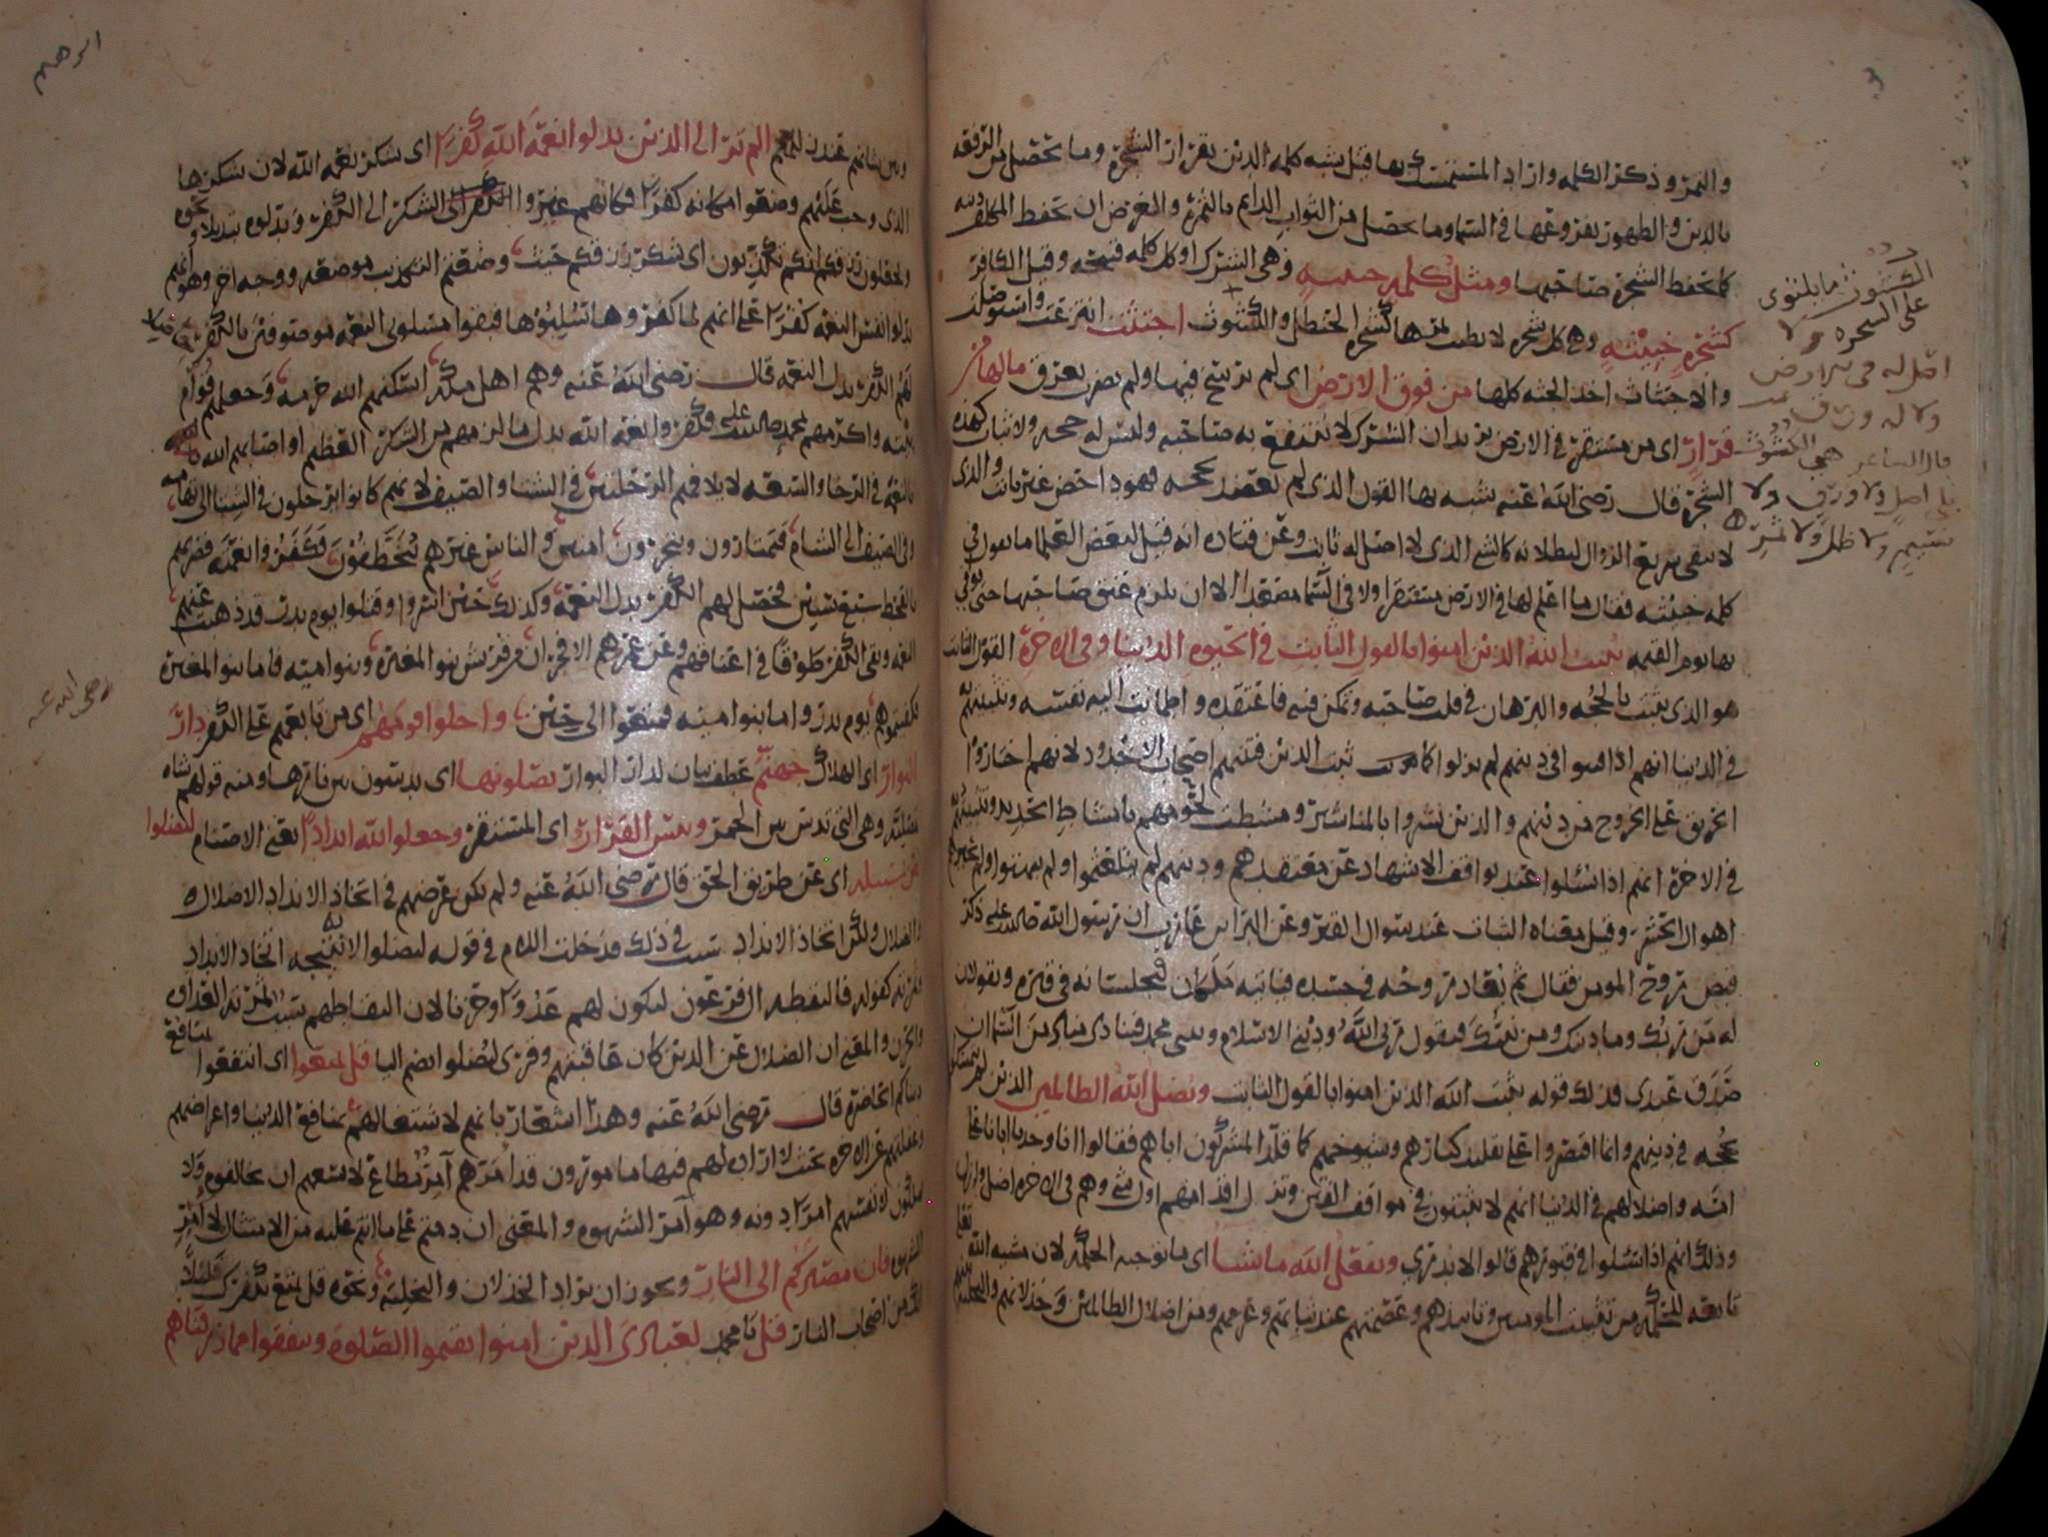 والثمر وذكر الكلمه واراد المستمسك بها قيل شبه كلمه الدين بقرار الشجره وما يحصل من الرفعه
بالدين والطهور بفروعها في السما وما يحصل من الثواب الدايم بالثمره والغرض ان يحفظ المكلف دينه
كما يحفظ الشجره صاحبها ومثل كلمه خبيثه وهي الشرك او كل كلمه قبيحه وقيل الكافر
كشجره خبيثه وهي كل شجره لا يطيب ثمرها كشجره الحنطل والكشوث اجتثت انتزعت واستوصلت
والاجتثاث اخذ الجثه كلها من فوق الارض اى لم ترسخ فيها ولم يضرب بعرق مالها من
قرار اى من مستقر في الارض يريد ان الشرك لا ينتفع به صاحبه وليس له حجه ولا ثبات كهذه
الشجره قال رضى الله عنه شبه بها القول الذى لم يعضد بحجه فهو داحض غير ثابت والذى
لا يبقى سريع الزوال لبطلانه كالشي الذى لا اصل له ثابت وعن قتاده انه قيل لبعض العلما ما تقول في
كلمه خبيثه فقال ما اعلم لها في الارض مستقرا ولا في السما مصعدا الا ان يلزم عنق صاحبها حتى يوافي
بها يوم القيمه يثبت الله الذين امنوا بالقول الثابت في الحيوه الدنيا وفي الاخره القول الثابت
هو الذى يثبت بالحجه والبرهان في قلب صاحبه وتمكن فيه فاعتقده واطمانت اليه نفسه وتثبيتهم به
في الدنيا انهم اذا فتنوا في دينهم لم يزلوا كما ثبت الذين فتنهم اصحاب الاخدود لانهم اختاروا
الحريق على الخروج من دينهم والذين نشروا بالمناشير ومشطت لحومهم بامشاط الحديد وتثبيتهم
في الاخره انهم اذا سئلوا عند تواقف الاشهاد عن معتقدهم ودينهم لم يتلعثموا ولم يبهتوا ولم تحيرهم
اهوال الحشر وقيل معناه الثبات عند سوال القبر وعن البرا بن عازب ان رسول الله صلى الله عليه ذكر
قبض روح المومن فقال ثم يعاد روحه في جسده فياتيه ملكان فيجلسانه في قبره ويقولان
له من ربك وما دينك ومن نبيك فيقول ربي الله وديني الاسلام ونبيي محمد فينادى مناد من السما ان
صدق عبدى فذلك قوله يثبت الله الذين امنوا بالقول الثابت ويضل الله الظالمين الذين لم يتمسكوا
بحجه في دينهم وانما اقتصروا على تقليد كبارهم وشيوخهم كما قلد المشركون اباهم فقالوا انا وجدنا ابانا على
امه واضلالهم في الدنيا انهم لا يثبتون في مواقف الفتن وتزل اقدامهم اول شي وهم في الاخره اضل وازل
وذلك انهم اذا سئلوا في قبورهم قالوا لا ندرى ويفعل الله ما يشا اى ما توجبه الحكمه لان مشيه الله
تابعه للحكمه من تثبيت المومنين وتاييدهم وعصمتهم عند ثباتهم وعزمهم ومن اضلال الظالمين وخذلانهم والتخليه بينهم
الكشوث ما يلتوى
على الشجره ولا
اصل له في الارض
ولا له ورق
قال الشاعر هي الكشوث
لا اصل ولا ورق ولا
نسيم ولا ظل ولا ثمر
ابرهيم
وبين شانهم عند زللهم الم تر الى الذين بدلوا نعمه الله كفرا اى شكر نعمه الله لان شكرها
الذى وجب عليهم وضعوا مكانه كفرا فكانهم غيروا الشكر الى الكفر وبدلوه تبديلا ونحوه
وتجعلون رزقكم انكم تكذبون اى شكر رزقكم حيث وضعتم التكذيب موضعه ووجه اخر وهو انهم
بدلوا نفس النعمه كفرا على انهم لما كفروها سلبوها فبقوا مسلوبى النعمه موصوفين بالكفر حاصلا
لهم الكفر بدل النعمه قال رضى الله عنه وهم اهل مكه اسكنهم الله حرمه وجعلهم قوام
بيته واكرمهم بمحمد صلى الله عليه فكفروا نعمه الله بدل ما لزمهم من الشكر العظيم او اصابهم الله
بالنعمه في الرخا والسعه لايلافهم الرحلتين في الشتا والصيف لانهم كانوا يرحلون في الشتا الى تهامه
وفي الصيف الى الشام فيمتارون ويتجرون امنين والناس غيرهم يتخطفون فكفروا نعمه فضربهم
بالقحط سبع سنين فحصل لهم الكفر بدل النعمه وكذلك حين اسروا وقتلوا يوم بدر قد ذهبت عنهم
النعمه وبقى الكفر طوقا في اعناقهم وعن عمر هم الافجران من قريش بنو المغيره وبنو اميه فاما بنو المغيره
فكفيتموهم يوم بدر واما بنو اميه فمتعوا الى حين واحلوا قومهم اى من تابعهم على الكفر دار
البوار اى الهلاك جهنم عطف بيان لدار البوار يصلونها اى يدخلون من نارها ومنه قولهم شاه
مصليه وهي التي تدس بين الجمر وبئس القرار اى المستقر وجعلوا لله اندادا يعنى الاصنام ليضلوا
عن سبيله اى عن طريق الحق قال رضى الله عنه ولم يكن غرضهم في اتخاذ الانداد الاضلال
والضلال ولكن اتخاذ الانداد سبب في ذلك فدخلت اللام في قوله ليضلوا لانه نتيجه اتخاذ الانداد
كقوله فالتقطه ال فرعون ليكون لهم عدوا وحزنا لان التقاطهم سبب لثمرته العداوه
والحزن والمعنى ان الضلال عن الدين كان عاقبتهم وقرى ليضلوا بضم اليا قل تمتعوا اى انتفعوا بمنافع
دنياكم الحاضره قال رضى الله عنه وهذا اشعار بانهم لاشتغالهم بمنافع الدنيا واعراضهم
وغفلتهم عن الاخره بحيث لا اراب لهم فيها مامورون قد امرهم آمر مطاع لا يسعهم ان يخالفوه ولا
يملكون لانفسهم امرا دونه وهو آمر الشهوه والمعنى ان دمتم على ما انتم عليه من الامتثال لامر
الشهوه فان مصيركم الى النار ويجوز ان يراد الخذلان والتخليه ونحوه قل تمتع بكفرك قليلا
انك من اصحاب النار قل يا محمد لعبادى الذين امنوا يقيموا الصلوه وينفقوا مما رزقناهم
رضى الله عنه